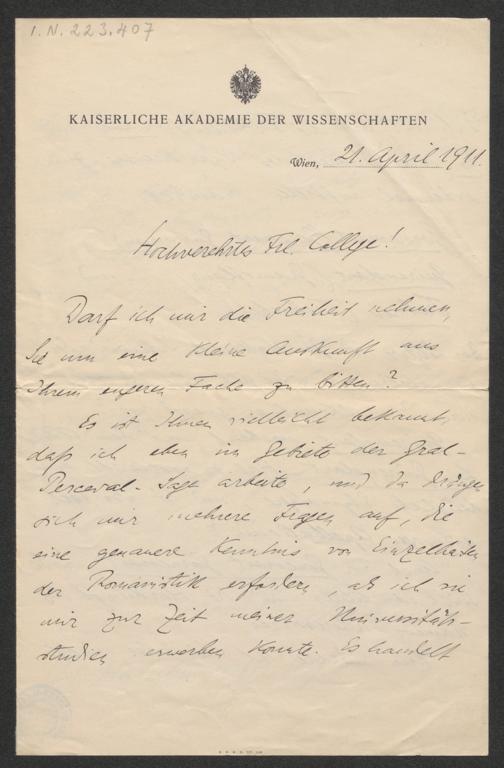 I.N. 223.407
KAISERLICHE AKADEMIE DER WISSENSCHAFTEN
Wien, 21. April 1911.
Hochverehrtes Frl. College!
Darf ich mir die Freiheit nehmen,
Sie um eine kleine Auskunft aus
Ihrem engeren Fache zu bitten?
Es ist Ihnen vielleicht bekannt,
daß ich eben im Gebiete der Gral-
Perceval-Sage arbeite, und da drängen
sich mir mehrere Fragen auf, die
eine genauere Kenntnis von Einzelheiten
der Romanistik erfordern, als ich sie
mir zur Zeit meiner Universitäts-
studien erwerben konnte. Es handelt